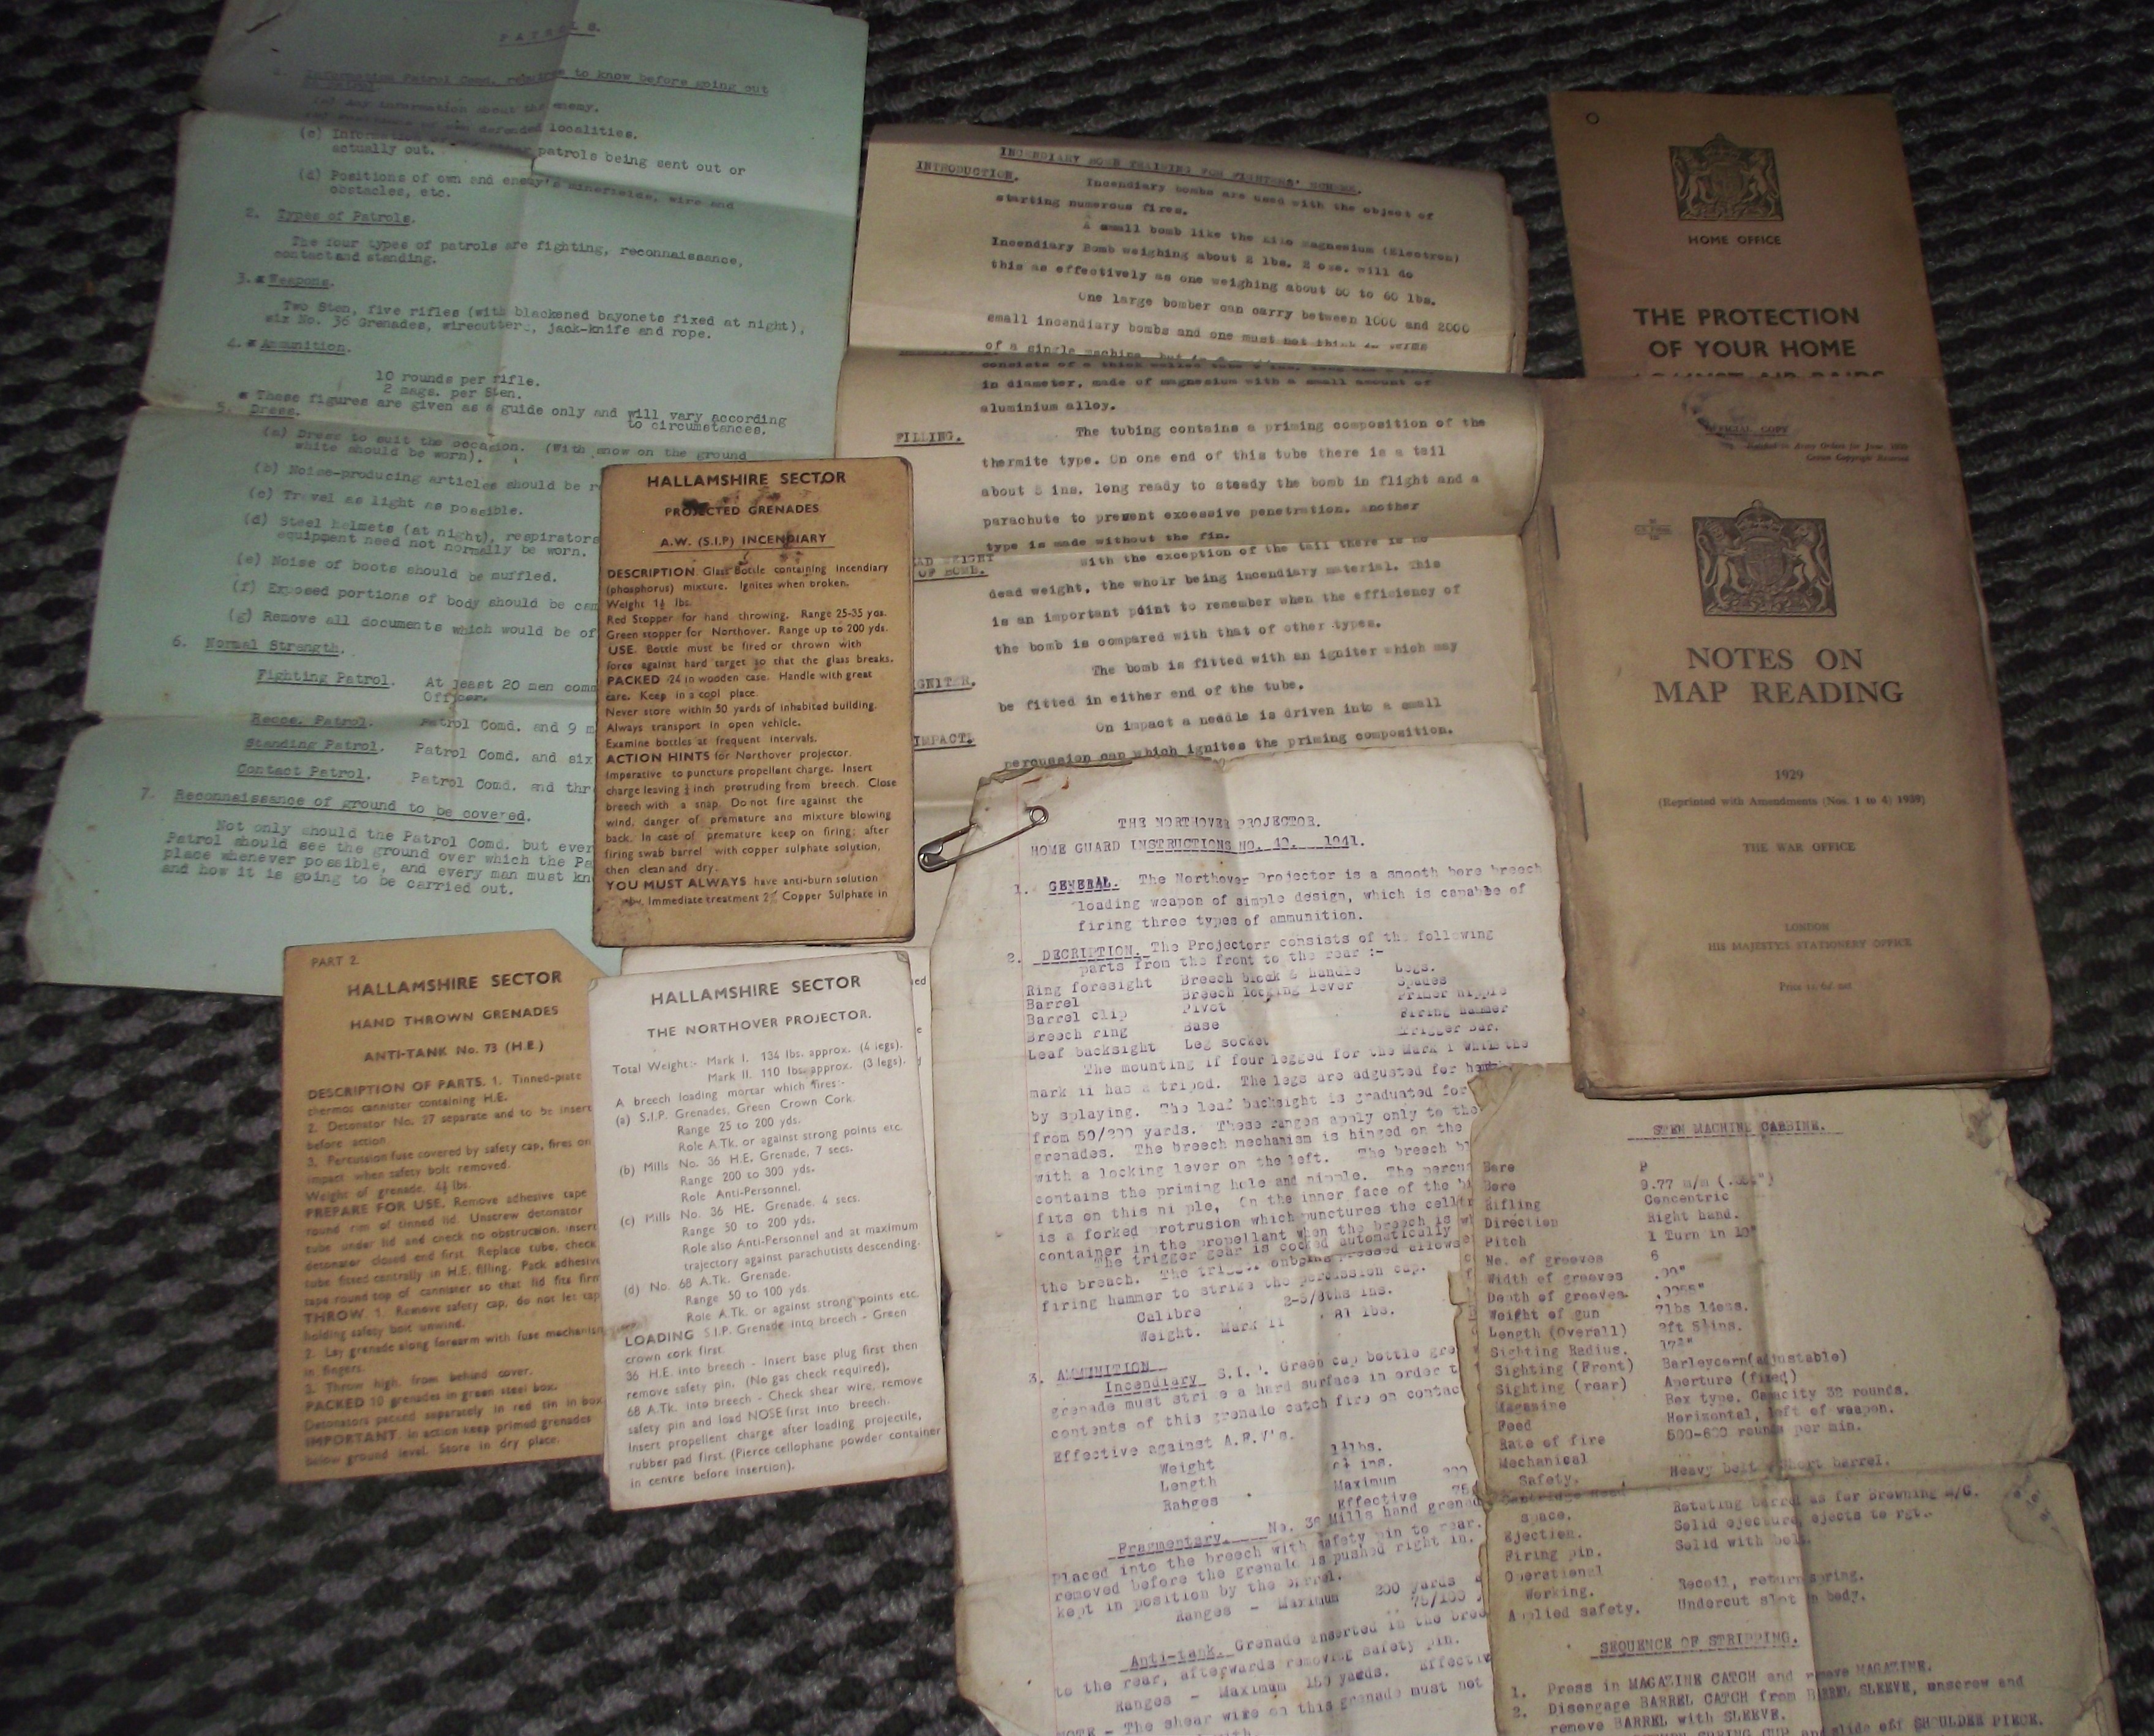 PATROLS.
Information Patrol Comd. requires to know before going out
(a) Any information about the enemy.
localities.
patrols being sent out or
actually out.
(d) Positions of own and enemy's minefields, wire and
obstacles, etc.
2. Types of Patrols.
The four types of patrols are fighting, reconnaissance,
contact and standing.
3. Weapons.
Two Sten, five rifles (with blackened bayonets fixed at night),
six No. 36 Grenades, wirecutter., jack-knife and rope.
4. Ammunition.
10 rounds per rifle.
2 mags. per Sten.
These figures are given as a guide only and will vary according
to circumstances.
5. Dress.
(a) Dress to suit the occasion. (With snow on the ground
white should be worn).
(b) Noise-producing articles should be
(c) Travel as light as possible.
(d) Steel helmets (at night), respirators
equipment need not normally be worn.
(e) Noise of boots should be muffled.
(f) Exposed portions of body should be
(g) Remove all documents which would be of
6. Normal Strength.
Fighting Patrol. At least 20 men
Officer.
Recce. Patrol. Patrol Comd. and 9
Standing Patrol. Patrol Comd. and six
Contact Patrol. Patrol Comd. and thr
7. Reconnaissance of ground to be covered.
Not only should the Patrol Comd. but ever
Patrol should see the ground over which the Pa
place whenever possible, and every man must kn
and how it is going to be carried out.
HALLAMSHIRE SECTOR
PROJECTED GRENADES
A.W. (S.I.P) INCENDIARY
DESCRIPTION. Glass Bottle containing Incendiary
(phosphorus) mixture. Ignites when broken.
Weight 1½ lbs.
Red Stopper for hand throwing. Range 25-35 yds.
Green stopper for Northover. Range up to 200 yds.
USE. Bottle must be fired or thrown with
force against hard target so that the glass breaks.
PACKED 24 in wooden case. Handle with great
care. Keep in a cool place.
Never store within 50 yards of inhabited building.
Always transport in open vehicle.
Examine bottles at frequent intervals.
ACTION HINTS for Northover projector.
Imperative to puncture propellent charge. Insert
charge leaving ½ inch protruding from breech. Close
breech with a snap. Do not fire against the
wind, danger of premature and mixture blowing
back. In case of premature keep on firing; after
firing swab barrel with copper sulphate solution,
then clean and dry.
YOU MUST ALWAYS have anti-burn solution
Immediate treatment 2% Copper Sulphate in
PART 2.
HALLAMSHIRE SECTOR
HAND THROWN GRENADES
ANTI-TANK No. 73 (H.E.)
DESCRIPTION OF PARTS. 1. Tinned-plate
thermos cannister containing H.E.
2. Detonator No. 27 separate and to be insert
before action.
3. Percussion fuse covered by safety cap, fires on
impact when safety bolt removed.
Weight of grenade, 4½ lbs.
PREPARE FOR USE. Remove adhesive tape
round rim of tinned lid. Unscrew detonator
tube under lid and check no obstruction, insert
detonator closed end first. Replace tube, check
tube fitted centrally in H.E. filling. Pack adhesive
tape round top of cannister so that lid fits firm
THROW 1. Remove safety cap, do not let tap
holding safety bolt unwind.
2. Lay grenade along forearm with fuse mechanism
in fingers.
3. Throw high, from behind cover.
PACKED 10 grenades in green steel box.
Detonators packed separately in red tin in box
IMPORTANT. In action keep primed grenades
below ground level. Store in dry place.
HALLAMSHIRE SECTOR
THE NORTHOVER PROJECTOR.
Total Weight:- Mark I. 134 lbs. approx. (4 legs).
Mark II. 110 lbs. approx. (3 legs).
A breech loading mortar which fires:-
(a) S.I.P. Grenades, Green Crown Cork.
Range 25 to 200 yds.
Role A.Tk. or against strong points etc.
(b) Mills No. 36 H.E. Grenade, 7 secs.
Range 200 to 300 yds.
Role Anti-Personnel.
(c) Mills No. 36 HE. Grenade. 4 secs.
Range 50 to 200 yds.
Role also Anti-Personnel and at maximum
trajectory against parachutists descending.
(d) No. 68 A.Tk. Grenade.
Range 50 to 100 yds.
Role A.Tk. or against strong points etc.
LOADING S.I.P. Grenade into breech - Green
crown cork first.
36 H.E. into breech - Insert base plug first then
remove safety pin. (No gas check required).
68 A.Tk. into breech - Check shear wire, remove
safety pin and load NOSE first into breech.
Insert propellent charge after loading projectile,
rubber pad first. (Pierce cellophane powder container
in centre before insertion).
INCENDIARY BOMB TRAINING FOR FIGHTERS' SCHEME.
INTRODUCTION.
Incendiary bombs are used with the object of
starting numerous fires.
A small bomb like the Kilo Magnesium (Electron)
Incendiary Bomb weighing about 2 lbs. 2 ozs. will do
this as effectively as one weighing about 50 to 60 lbs.
One large bomber can carry between 1000 and 2000
small incendiary bombs and one must not think in terms
of a single machine,
in diameter, made of magnesium with a small amount of
aluminium alloy.
FILLING. The tubing contains a priming composition of the
thermite type. On one end of this tube there is a tail
about 5 ins. long ready to steady the bomb in flight and a
parachute to prevent excessive penetration. Another
type is made without the fin.
AD WEIGHT
OF BOMB.
With the exception of the tail there is no
dead weight, the wholr being incendiary material. This
is an important point to remember when the efficiency of
the bomb is compared with that of other types.
GNITER. The bomb is fitted with an igniter which may
be fitted in either end of the tube.
IMPACT. On impact a needle is driven into a small
percussion cap which ignites the priming composition.
THE NORTHOVER PROJECTOR.
HOME GUARD INSTRUCTIONS NO. 1941.
1. GENERAL. The Northover Projector is a smooth bore breech
loading weapon of simple design, which is capable of
firing three types of ammunition.
2. DECRIPTION. The Projectorr consists of the following
parts from the front to the rear :-
Ring foresight Breech block & handle Legs.
Barrel Breech locking lever Spades
Barrel clip Pivot Primer nipple
Breech ring Base Firing hammer
Leaf backsight Leg socket Trigger bar.
The mounting if four legged for the Mark I while the
mark ii has a tripod. The legs are adgusted for
by splaying. The leaf backsight is graduated for
from 50/200 yards. These ranges apply only to the
grenades. The breech mechanism is hinged on the
with a locking lever on the left. The breech bl
contains the priming hole and nipple. The percus
fits on this ni ple, On the inner face of the
is a forked protrusion which punctures the
container in the propellant when the breech is
The trigger gear is cocked automatically
the breach. The trigger onbeing pressed allows
firing hammer to strike the percussion cap.
Calibre 2-5/8ths ins.
Weight. Mark ii 81 lbs.
3. AMMUNITION
Incendiary S.I.P. Green cap bottle gre
grenade must strike a hard surface in order t
contents of this grenade catch fire on contac
Effective against A.F.V's.
Weight
Length
Ranges Maximum
Effective
Fragmentary. No. 36 Mills hand grenad
Placed into the breech with safety pin to rear.
removed before the grenade is pushed right in,
kept in position by the barrel.
Ranges - Maximum 200 yards
75/100
Anti-tank. Grenade inserted in the bree
to the rear, afterwards removing safety pin.
Ranges - Maximum yards. Effectiv
NOTE - The shear wire on this grenade must not
HOME OFFICE
THE PROTECTION
OF YOUR HOME
AGAINST AIR RAIDS
OFFICIAL COPY
Crown Copyright Reserved
NOTES ON
MAP READING
1929
(Reprinted with Amendments (Nos. 1 to 4) 1939)
THE WAR OFFICE
LONDON
HIS MAJESTY'S STATIONERY OFFICE
STEN MACHINE CARBINE.
Bore
Rifling Concentric
Direction Right hand.
Pitch 1 Turn in 10"
No. of grooves 6
Width of grooves
Depth of grooves.
Weight of gun 7lbs 14ozs.
Length (Overall) 2ft 5½ins.
Sighting Radius.
Sighting (Front) Barleycorn(adjustable)
Sighting (rear) Aperture (fixed)
Magazine Box type. Capacity 32 rounds.
Feed Horizontal, left of weapon.
Rate of fire 500-600 rounds per min.
Mechanical
Safety. Heavy bolt short barrel.
space. Rotating barrel as for Browning
Ejection. Solid ejector, ejects to rgt.
Firing pin. Solid with bolt.
Operational
Working. Recoil, return spring.
Applied safety. Undercut slot in body.
SEQUENCE OF STRIPPING.
1. Press in MAGAZINE CATCH and remove MAGAZINE.
2. Disengage BARREL CATCH from BARREL SLEEVE, unscrew and
remove BARREL with SLEEVE.
and slide off SHOULDER PIECE.